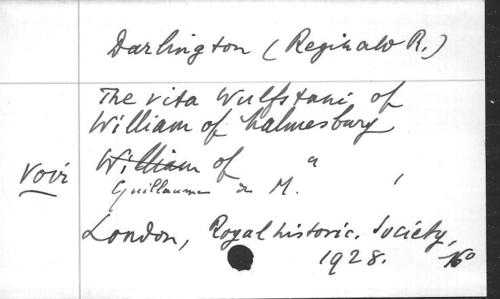 Darlington (Reginald R.)
The vita Wulfstani of
William of Malmesbury
voir William of "
Guillaume de M.
London, Royal historic. Society,
1928.